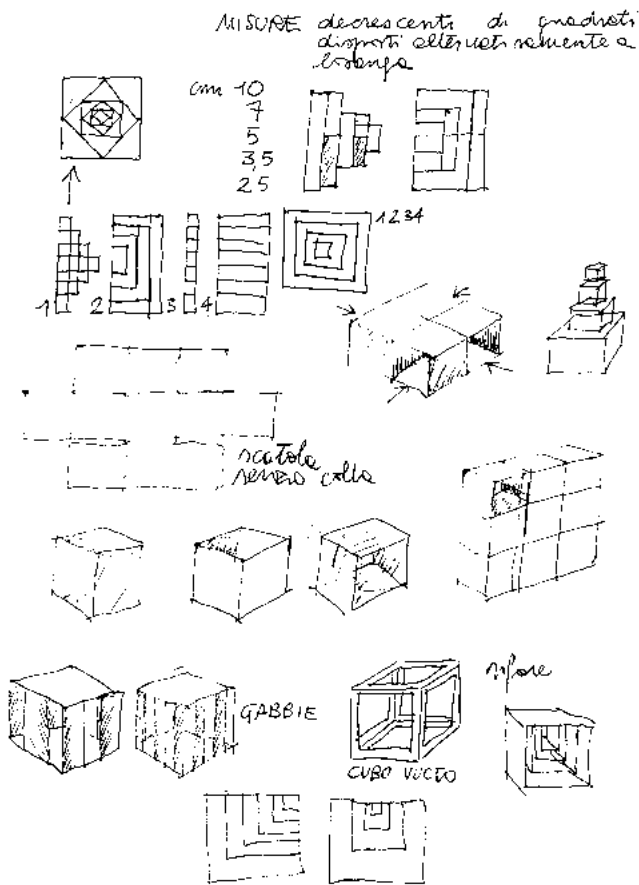 MISURE decrescenti di quadrati
disposti alternativamente a
losanga
cm 10
7
5
3,5
2,5
1 2 3 4
1234
scatola
senza colla
GABBIE
CUBO VUOTO